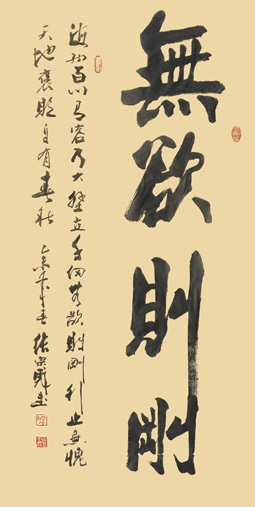 無欲則剛
海納百川有容乃大壁立千仞無欲則剛行止無愧
天地褒貶自有春秋 乙未年 張 書